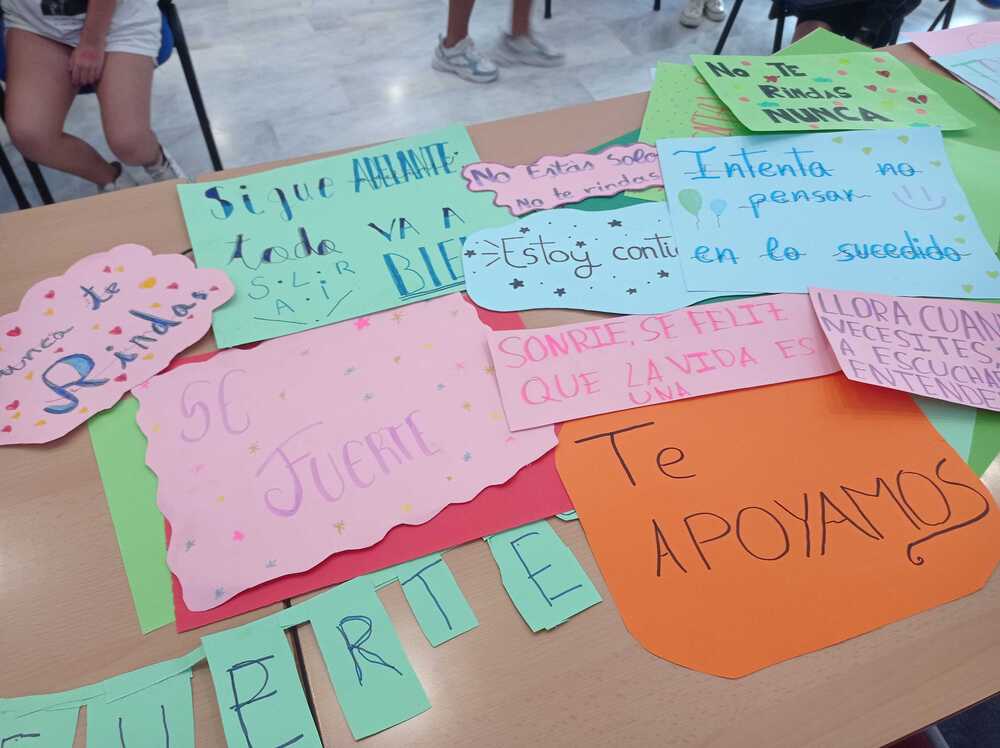 No TE
RindAS
NUNCA
Sigue ADELANTE
todo VA A
SALIR BIE
No Estás Solo
No te rindas
Estoy conti
Intenta no
pensar
en lo sucedido
unca te
Rindas
SE
FUERTE
SONRIE, SE FELIZ
QUE LA VIDA ES
UNA
LLORA CUAN
NECESITES,
A ESCUCHA
ENTENDE
Te
APOYAMOS
FUERTE